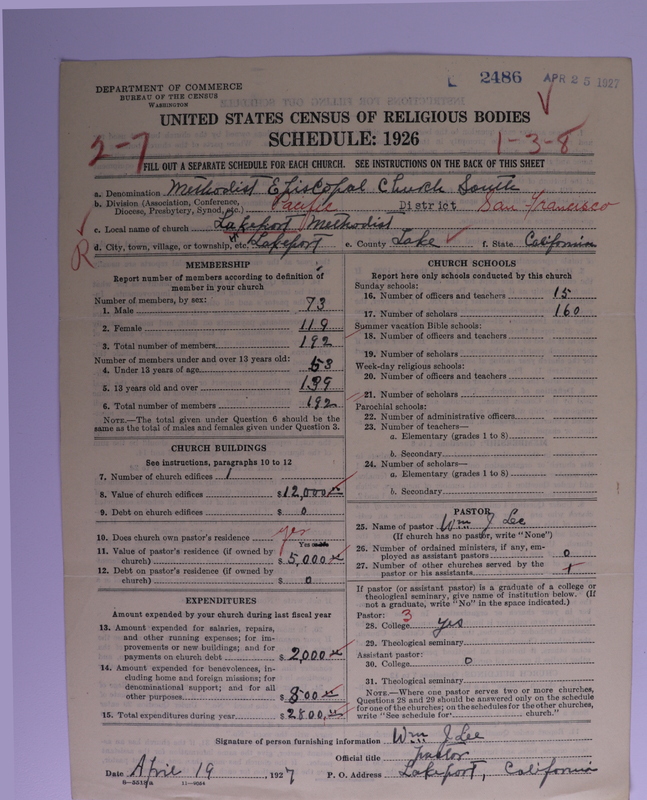 2486 APR 25 1927
DEPARTMENT OF COMMERCE
BUREAU OF THE CENSUS
WASHINGTON
UNITED STATES CENSUS OF RELIGIOUS BODIES
SCHEDULE: 1926
2-7
1-3-8
FILL OUT A SEPARATE SCHEDULE FOR EACH CHURCH. SEE INSTRUCTIONS ON THE BACK OF THIS SHEET
a. Denomination Methodist Episcopal Church South
b. Division (Association, Conference, Diocese, Presbytery, Synod, etc.) Pacific District San-Francisco
c. Local name of church Lakeport Methodist
R
d. City, town, village, or township, etc. Lakeport e. County Lake f. State California
MEMBERSHIP
Report number of members according to definition of
member in your church
Number of members, by sex:
1. Male 73
2. Female 119
3. Total number of members 192
Number of members under and over 13 years old:
4. Under 13 years of age 53
5. 13 years old and over 139
6. Total number of members 192
NOTE.—The total given under Question 6 should be
same as the total of males and females given under Question 3.
CHURCH BUILDINGS
See instructions, paragraphs 10 to 12
7. Number of church edifices 1
8. Value of church edifices $12,000
9. Debt on church edifices $ 0
10. Does church own pastor's residence yes
Yes
11. Value of pastor's residence (if owned by
church) $5,000
12. Debt on pastor's residence (if owned by
church) $ 0
EXPENDITURES
Amount expended by your church during last fiscal year
13. Amount expended for salaries, repairs,
and other running expenses; for im-
provements or new buildings; and for
payments on church debt $2,000
14. Amount expended for benevolences, in-
cluding home and foreign missions; for
denominational support; and for all
other purposes $800
15. Total expenditures during year $2800
CHURCH SCHOOLS
Report here only schools conducted by this church
Sunday schools:
16. Number of officers and teachers 15
17. Number of scholars 160
Summer vacation Bible schools:
18. Number of officers and teachers
19. Number of scholars
Week-day religious schools:
20. Number of officers and teachers
21. Number of scholars
Parochial schools:
22. Number of administrative officers
23. Number of teachers—
a. Elementary (grades 1 to 8)
b. Secondary
24. Number of scholars—
a. Elementary (grades 1 to 8)
b. Secondary
PASTOR
25. Name of pastor Wm J Lee
(If church has no pastor, write "None")
26. Number of ordained ministers, if any, em-
ployed as assistant pastors 0
27. Number of other churches served by the
pastor or his assistants
If pastor (or assistant pastor) is a graduate of a college or
theological seminary, give name of institution below. (If
not a graduate, write "No" in the space indicated.)
Pastor: 3
28. College yes
29. Theological seminary
Assistant pastor:
30. College 0
31. Theological seminary
NOTE.—Where one pastor serves two or more churches,
Questions 28 and 29 should be answered only on the schedule
for one of the churches; on the schedules for the other churches,
write "See schedule for church."
Signature of person furnishing information Wm J Lee
Official title Pastor
Date April 19, 1927 P. O. Address Lakeport, California